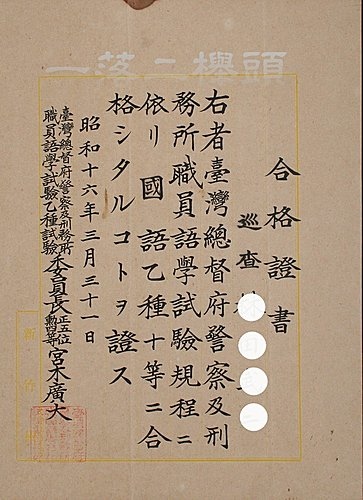 頭擧二落一
合格證書
巡査
右者臺灣總督府警察及刑
務所職員語學試驗規程ニ
依リ國語乙種十等ニ合
格シタルコトヲ證ス
昭和十六年三月三十一日
臺灣總督府警察及刑務所
職員語學試驗乙種試驗
委員長
正五位
勲四等
宮木廣大